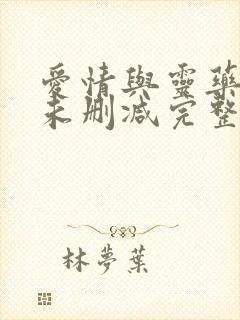 愛情與靈藥
未刪減完整
林夢葉